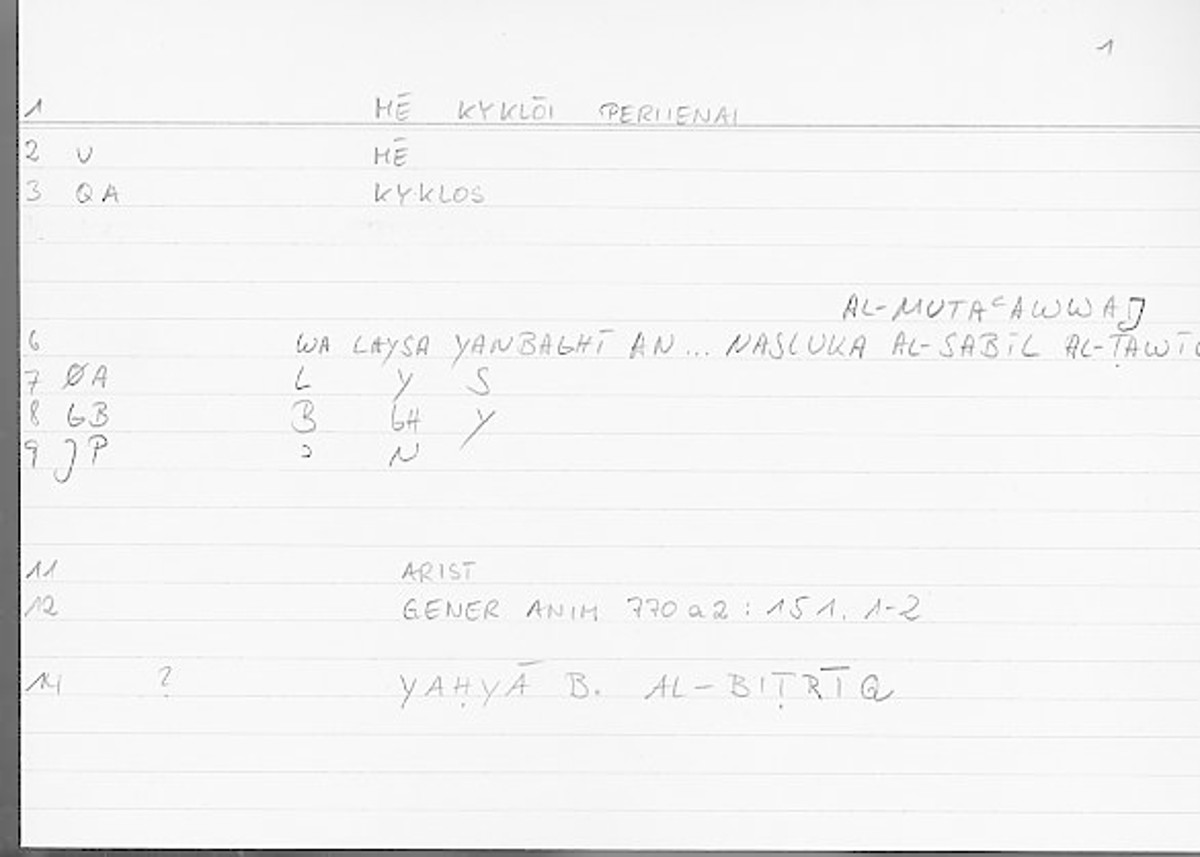 1
1 MĒ KYKLŌI PERIIENAI
2 V MĒ
3 QA KYKLOS
AL-MUTAʿAWWAJ
6 WA LAYSA YANBAGHĪ AN... NASLUKA AL-SABĪL AL-ṬAWĪ
7 ØA L Y S
8 GB B GH Y
9 JP ʾ N
11 ARIST
12 GENER ANIM 770a2: 151. 1-2
14 ? YAḤYĀ B. AL-BIṬRĪQ